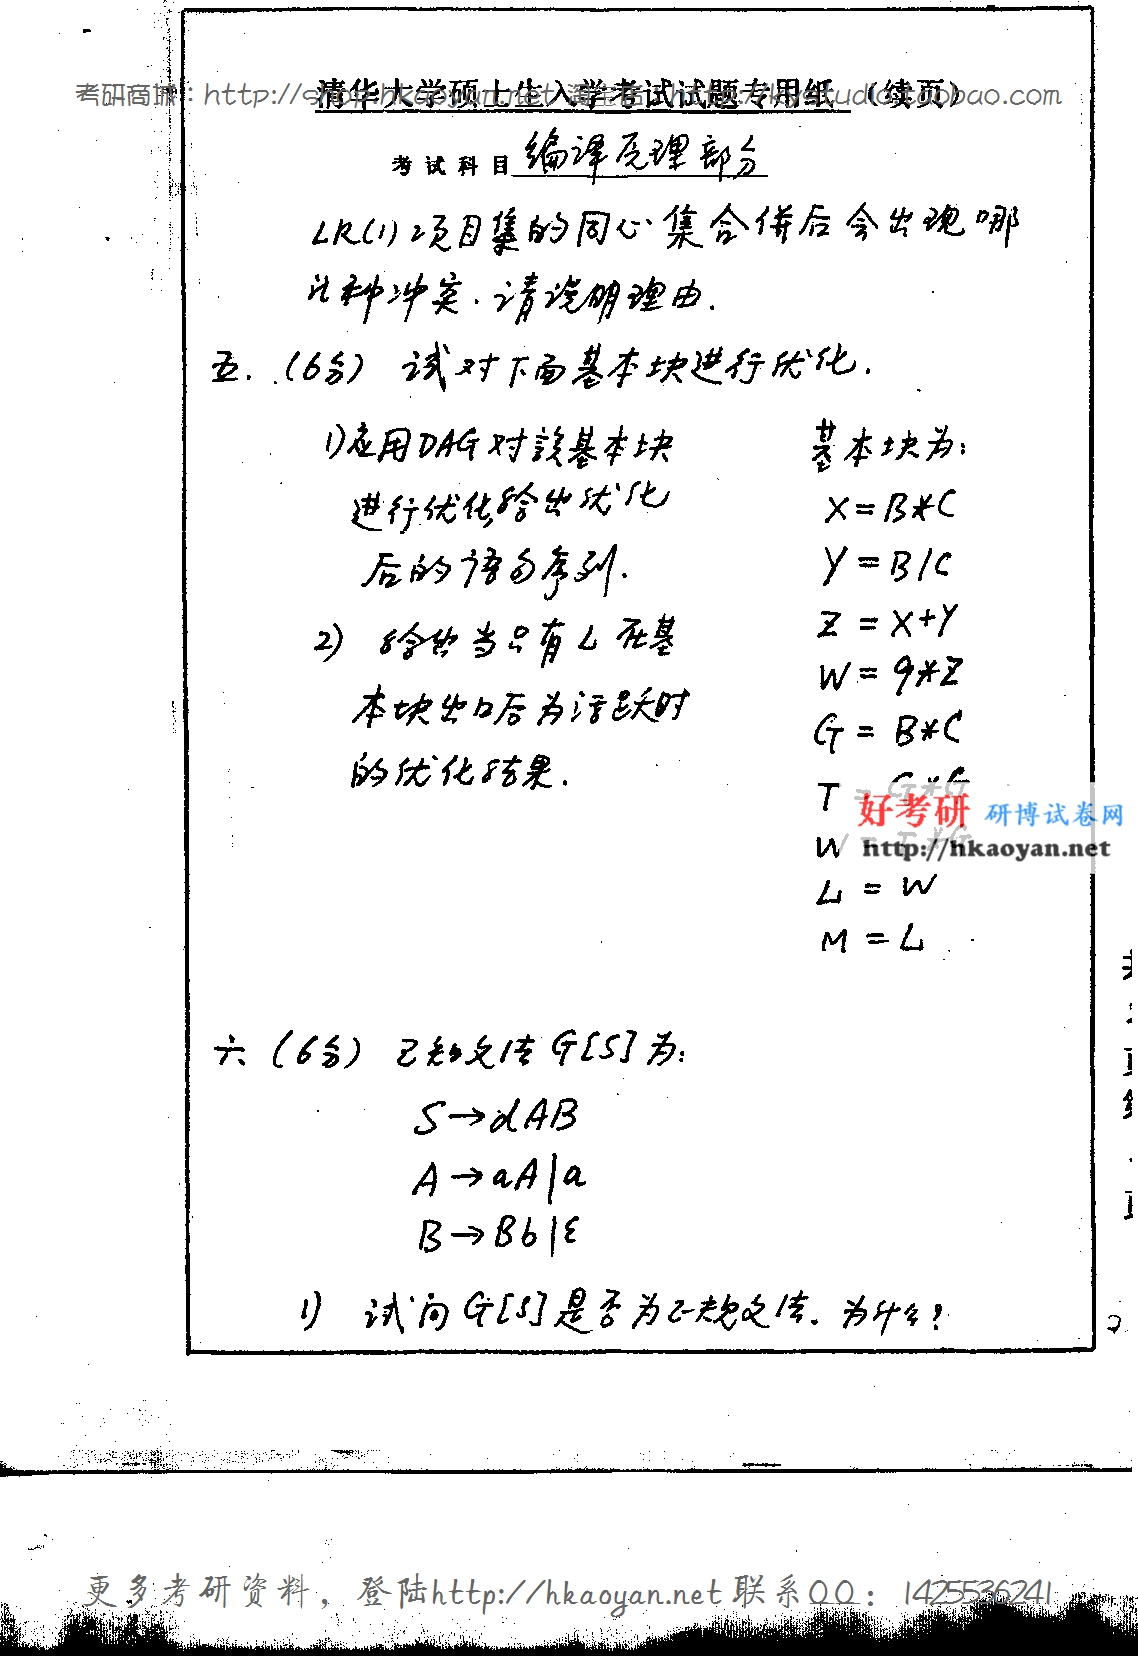 考研商城: http://shop.hkaoyan.net 淘宝店: http://kystudio.taobao.com
清华大学硕士生入学考试试题专用纸 (续页)
考试科目 编译原理部分
LR(1)项目集的同心集合併后会出现哪
些种冲突.请说明理由.
五. (6分) 试对下面基本块进行优化.
1)应用DAG对該基本块
进行优化,给出优化
后的语句序列.
2) 给出当只有L在基
本块出口后为活跃时
的优化结果.
基本块为:
X=B*C
Y=B/C
Z=X+Y
W=9*Z
G=B*C
T=G*G
W=T*G
L=W
M=L
好考研 研博试卷网
http://hkaoyan.net
六 (6分) 已知文法G[S]为:
S→dAB
A→aA|a
B→Bb|ε
1) 试问G[S]是否为正规文法.为什么?
2
更多考研资料，登陆http://hkaoyan.net 联系QQ: 1425536241